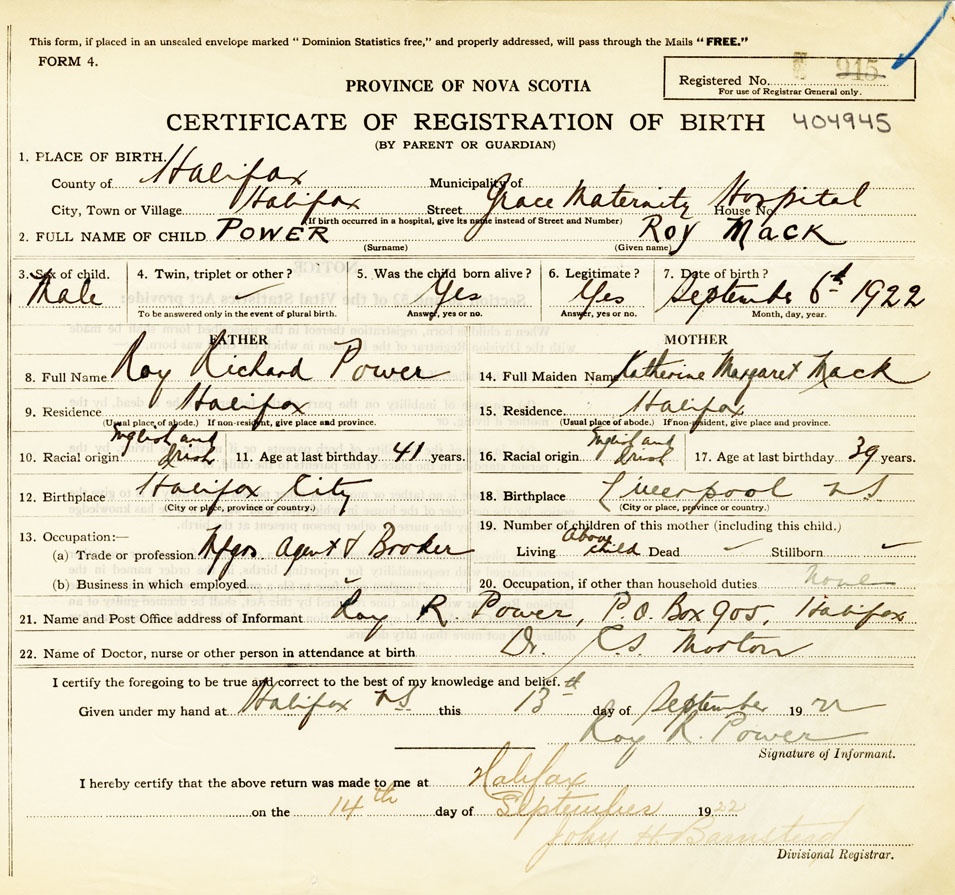 This form, if placed in an unsealed envelope marked "Dominion Statistics free," and properly addressed, will pass through the Mails "FREE."
FORM 4.
Registered No. 915
For use of Registrar General only.
PROVINCE OF NOVA SCOTIA
CERTIFICATE OF REGISTRATION OF BIRTH 404945
(BY PARENT OR GUARDIAN)
1. PLACE OF BIRTH.
County of Halifax Municipality of
City, Town or Village Halifax Street Grace Maternity Hospital House No.
(If birth occurred in a hospital, give its name instead of Street and Number)
2. FULL NAME OF CHILD POWER Roy Mack
(Surname) (Given name)
3. Sex of child. 4. Twin, triplet or other? 5. Was the child born alive? 6. Legitimate? 7. Date of birth?
Male Yes Yes September 6th 1922
To be answered only in the event of plural birth. Answer, yes or no. Answer, yes or no. Month, day, year.
FATHER MOTHER
8. Full Name Roy Richard Power 14. Full Maiden Name Katherine Margaret Mack
9. Residence Halifax 15. Residence. Halifax
(Usual place of abode.) If non-resident, give place and province. (Usual place of abode.) If non-resident, give place and province.
10. Racial origin English and Irish 11. Age at last birthday 41 years. 16. Racial origin English and Irish 17. Age at last birthday 39 years.
12. Birthplace Halifax City 18. Birthplace Liverpool NS
(City or place, province or country.) (City or place, province or country.)
13. Occupation:— 19. Number of children of this mother (including this child.)
(a) Trade or profession Mfgrs Agent & Broker Living Above child Dead Stillborn
(b) Business in which employed " 20. Occupation, if other than household duties None
21. Name and Post Office address of Informant Roy R. Power, P.O. Box 905, Halifax
22. Name of Doctor, nurse or other person in attendance at birth Dr. Morton
I certify the foregoing to be true and correct to the best of my knowledge and belief.
Given under my hand at Halifax NS this 13th day of September 1922
Roy R. Power
Signature of Informant.
I hereby certify that the above return was made to me at Halifax
on the 14th day of September 1922
John H. Barnstead
Divisional Registrar.